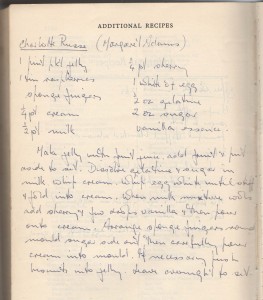 ADDITIONAL RECIPES
Charlotte Russe (Margaret Adams)
1 pint pkt jelly
1 tin raspberries
sponge fingers
¾ pt cream
¼ pt milk
¼ pt sherry
1 white of egg
½ oz gelatine
2 oz sugar
vanilla essence.
Make jelly with fruit juice, add fruit & put
aside to set. Dissolve gelatine & sugar in
milk whip cream. Whip egg white until stiff
& fold into cream. When milk mixture cools
add sherry & two drops vanilla & then pour
onto cream. Arrange sponge fingers round
mould sugar side out then carefully pour
cream into mould. If necessary push
biscuits into jelly. Leave overnight to set.